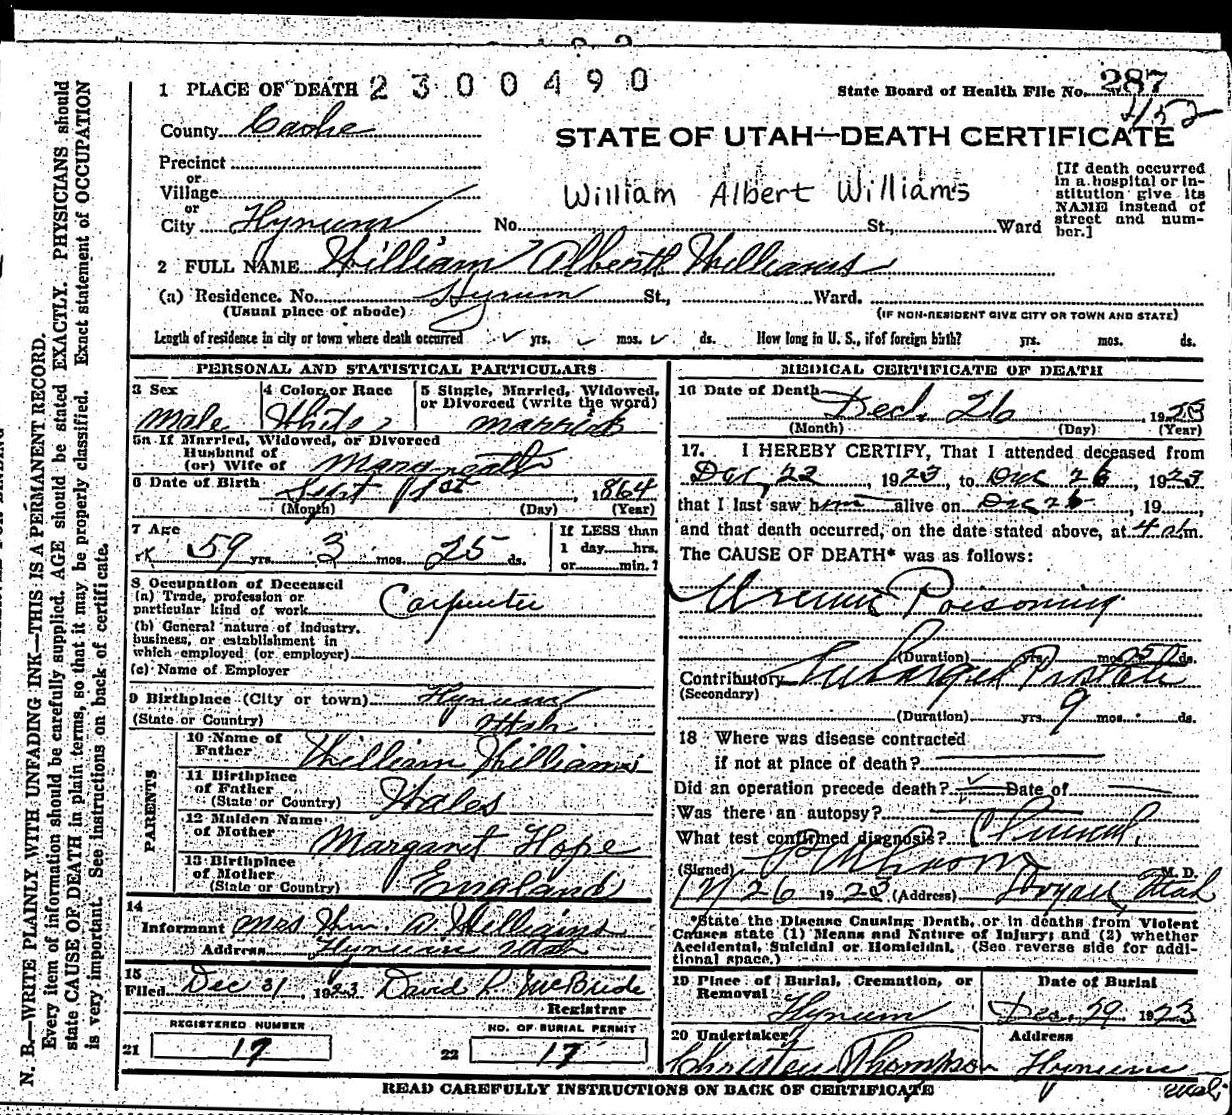 1 PLACE OF DEATH 2300490
State Board of Health File No. 287
452
County Cache
STATE OF UTAH—DEATH CERTIFICATE
Precinct
or
Village
William Albert Williams
[If death occurred in a hospital or institution give its NAME instead of street and number.]
or
City Hyrum No. St., Ward
2 FULL NAME William Albert Williams
(a) Residence. No. Hyrum St., Ward.
(Usual place of abode) (IF NON-RESIDENT GIVE CITY OR TOWN AND STATE)
Length of residence in city or town where death occurred yrs. mos. ds. How long in U. S., if of foreign birth? yrs. mos. ds.
PERSONAL AND STATISTICAL PARTICULARS
3 Sex 4 Color or Race 5 Single, Married, Widowed, or Divorced (write the word)
Male White married
5a If Married, Widowed, or Divorced
Husband of
(or) Wife of
6 Date of Birth Sept 1st, 1864
(Month) (Day) (Year)
7 Age 59 yrs. 3 mos. 25 ds.
If LESS than
1 day......hrs.
or......min.?
8 Occupation of Deceased
(a) Trade, profession or
particular kind of work Carpenter
(b) General nature of industry,
business, or establishment in
which employed (or employer)
(c) Name of Employer
9 Birthplace (City or town) Hyrum
(State or Country) Utah
PARENTS
10 Name of
Father William Williams
11 Birthplace
of Father
(State or Country) Wales
12 Maiden Name
of Mother Margaret Hope
13 Birthplace
of Mother
(State or Country) England
14
Informant Mrs. Wm. A. Williams
Address Hyrum Utah
15
Filed Dec 31, 1923 David P. McBride
Registrar
REGISTERED NUMBER NO. OF BURIAL PERMIT
21 17 22 17
MEDICAL CERTIFICATE OF DEATH
16 Date of Death Dec. 26 1923
(Month) (Day) (Year)
17. I HEREBY CERTIFY, That I attended deceased from
Dec, 22, 1923, to Dec 26, 1923
that I last saw him alive on Dec 26, 19
and that death occurred, on the date stated above, at 4 a.m.
The CAUSE OF DEATH* was as follows:
Uremic Poisoning
(Duration) yrs. mos. ds.
Contributory Enlarged Prostate
(Secondary)
(Duration) yrs. 9 mos. ds.
18 Where was disease contracted
if not at place of death?
Did an operation precede death? Date of
Was there an autopsy?
What test confirmed diagnosis? Clinical.
(Signed) M. D.
12/26 1923 (Address) Utah
*State the Disease Causing Death, or in deaths from Violent
Causes state (1) Means and Nature of Injury; and (2) whether
Accidental, Suicidal or Homicidal. (See reverse side for addi-
tional space.)
19 Place of Burial, Cremation, or
Removal Hyrum
Date of Burial
Dec. 29 1923
20 Undertaker Address
Thompson Hyrum
Utah
READ CAREFULLY INSTRUCTIONS ON BACK OF CERTIFICATE
N. B.—WRITE PLAINLY, WITH UNFADING INK—THIS IS A PERMANENT RECORD.
Every item of information should be carefully supplied. AGE should be stated EXACTLY. PHYSICIANS should
state CAUSE OF DEATH in plain terms, so that it may be properly classified. Exact statement of OCCUPATION
is very important. See instructions on back of certificate.